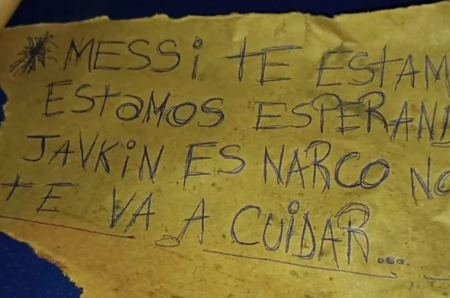 MESSi tE EStAM
EStaMOS ESPERAND
JAVKiN ES NARCO NO
tE VA A CUiDAR...